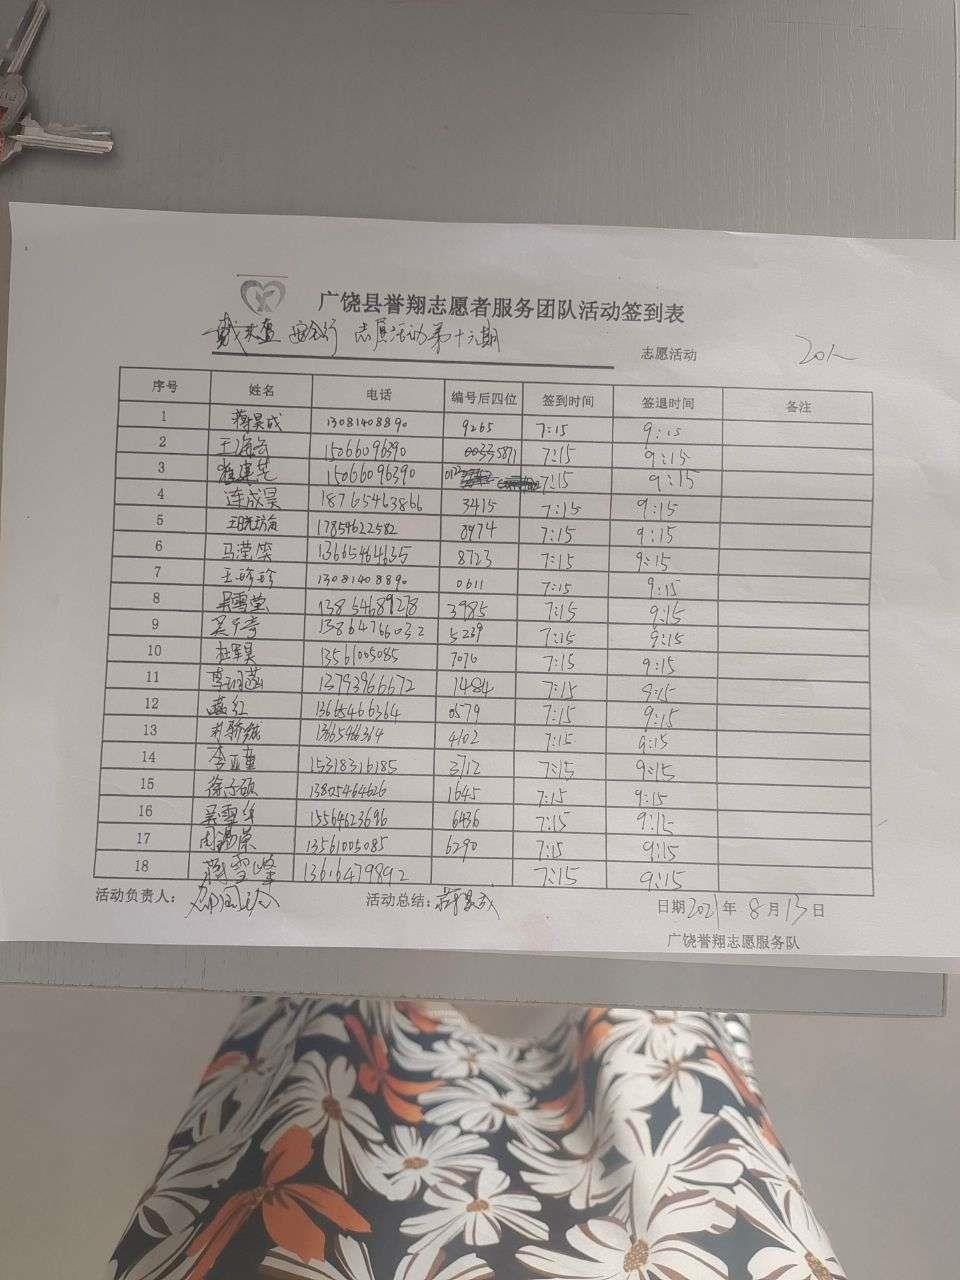 广饶县誉翔志愿者服务团队活动签到表
戴头盔 安全行 志愿活动第十六期 志愿活动 20人
序号 姓名 电话 编号后四位 签到时间 签退时间 备注
1 蒋昊成 13081408890 9265 7:15 9:15
2 王海云 15066096390 00335871 7:15 9:15
3 崔建芝 15066096390 0122 7:15 9:15
4 连成昊 18765463866 3415 7:15 9:15
5 17854622582 8974 7:15 9:15
6 马滢 13665464635 8723 7:15 9:15
7 王珍珍 13081408890 0611 7:15 9:15
8 吴雪莹 13854689278 3985 7:15 9:15
9 13864766032 5239 7:15 9:15
10 杜军昊 13561005085 7076 7:15 9:15
11 李玥菡 13793966672 1484 7:15 9:15
12 燕红 13665466364 0579 7:15 9:15
13 4102 7:15 9:15
14 李亚童 15318316185 3712 7:15 9:15
15 徐子硕 13805464626 1645 7:15 9:15
16 吴雪华 15564623696 6436 7:15 9:15
17 13561005085 6290 7:15 9:15
18 雪峰 13616479892 7:15 9:15
活动负责人： 活动总结：蒋昊成 日期2021年 8月13日
广饶誉翔志愿服务队